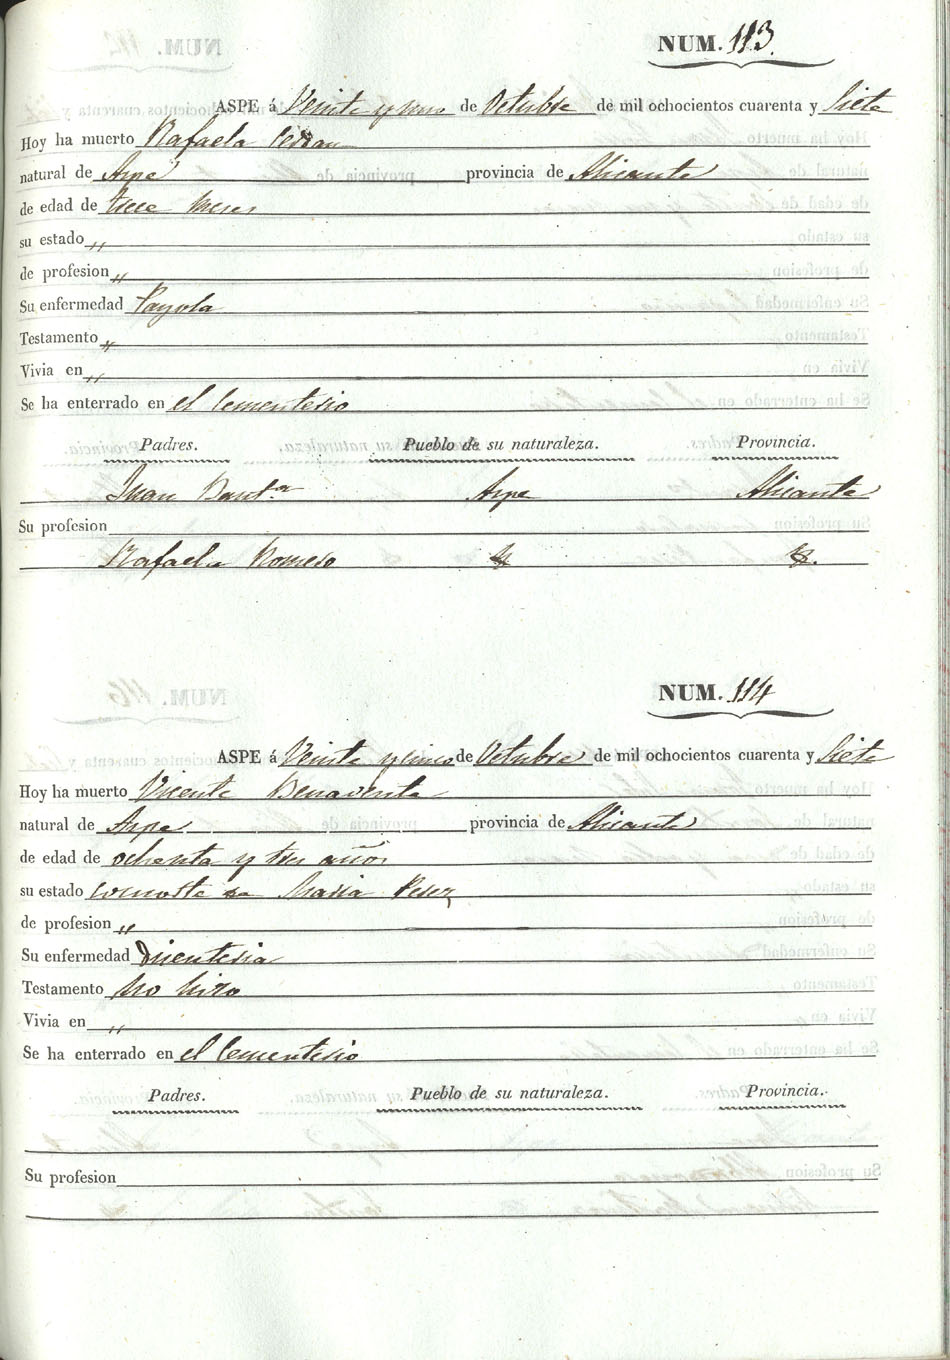 NUM. 113
ASPE á Veinte y uno de Octubre de mil ochocientos cuarenta y Siete
Hoy ha muerto Rafaela
natural de Aspe provincia de Alicante
de edad de trece meses
su estado „
de profesion „
Su enfermedad Payola
Testamento „
Vivia en „
Se ha enterrado en el Cementerio
Padres. Pueblo de su naturaleza. Provincia.
Juan Baut.ª Aspe Alicante
Su profesion
Rafaela Romero
NUM. 114
ASPE á Veinte y cinco de Octubre de mil ochocientos cuarenta y Siete
Hoy ha muerto Vicente Benavente
natural de Aspe provincia de Alicante
de edad de ochenta y tres años
su estado consorte de Maria Perez
de profesion „
Su enfermedad Disenteria
Testamento No hizo
Vivia en „
Se ha enterrado en el Cementerio
Padres. Pueblo de su naturaleza. Provincia.
Su profesion